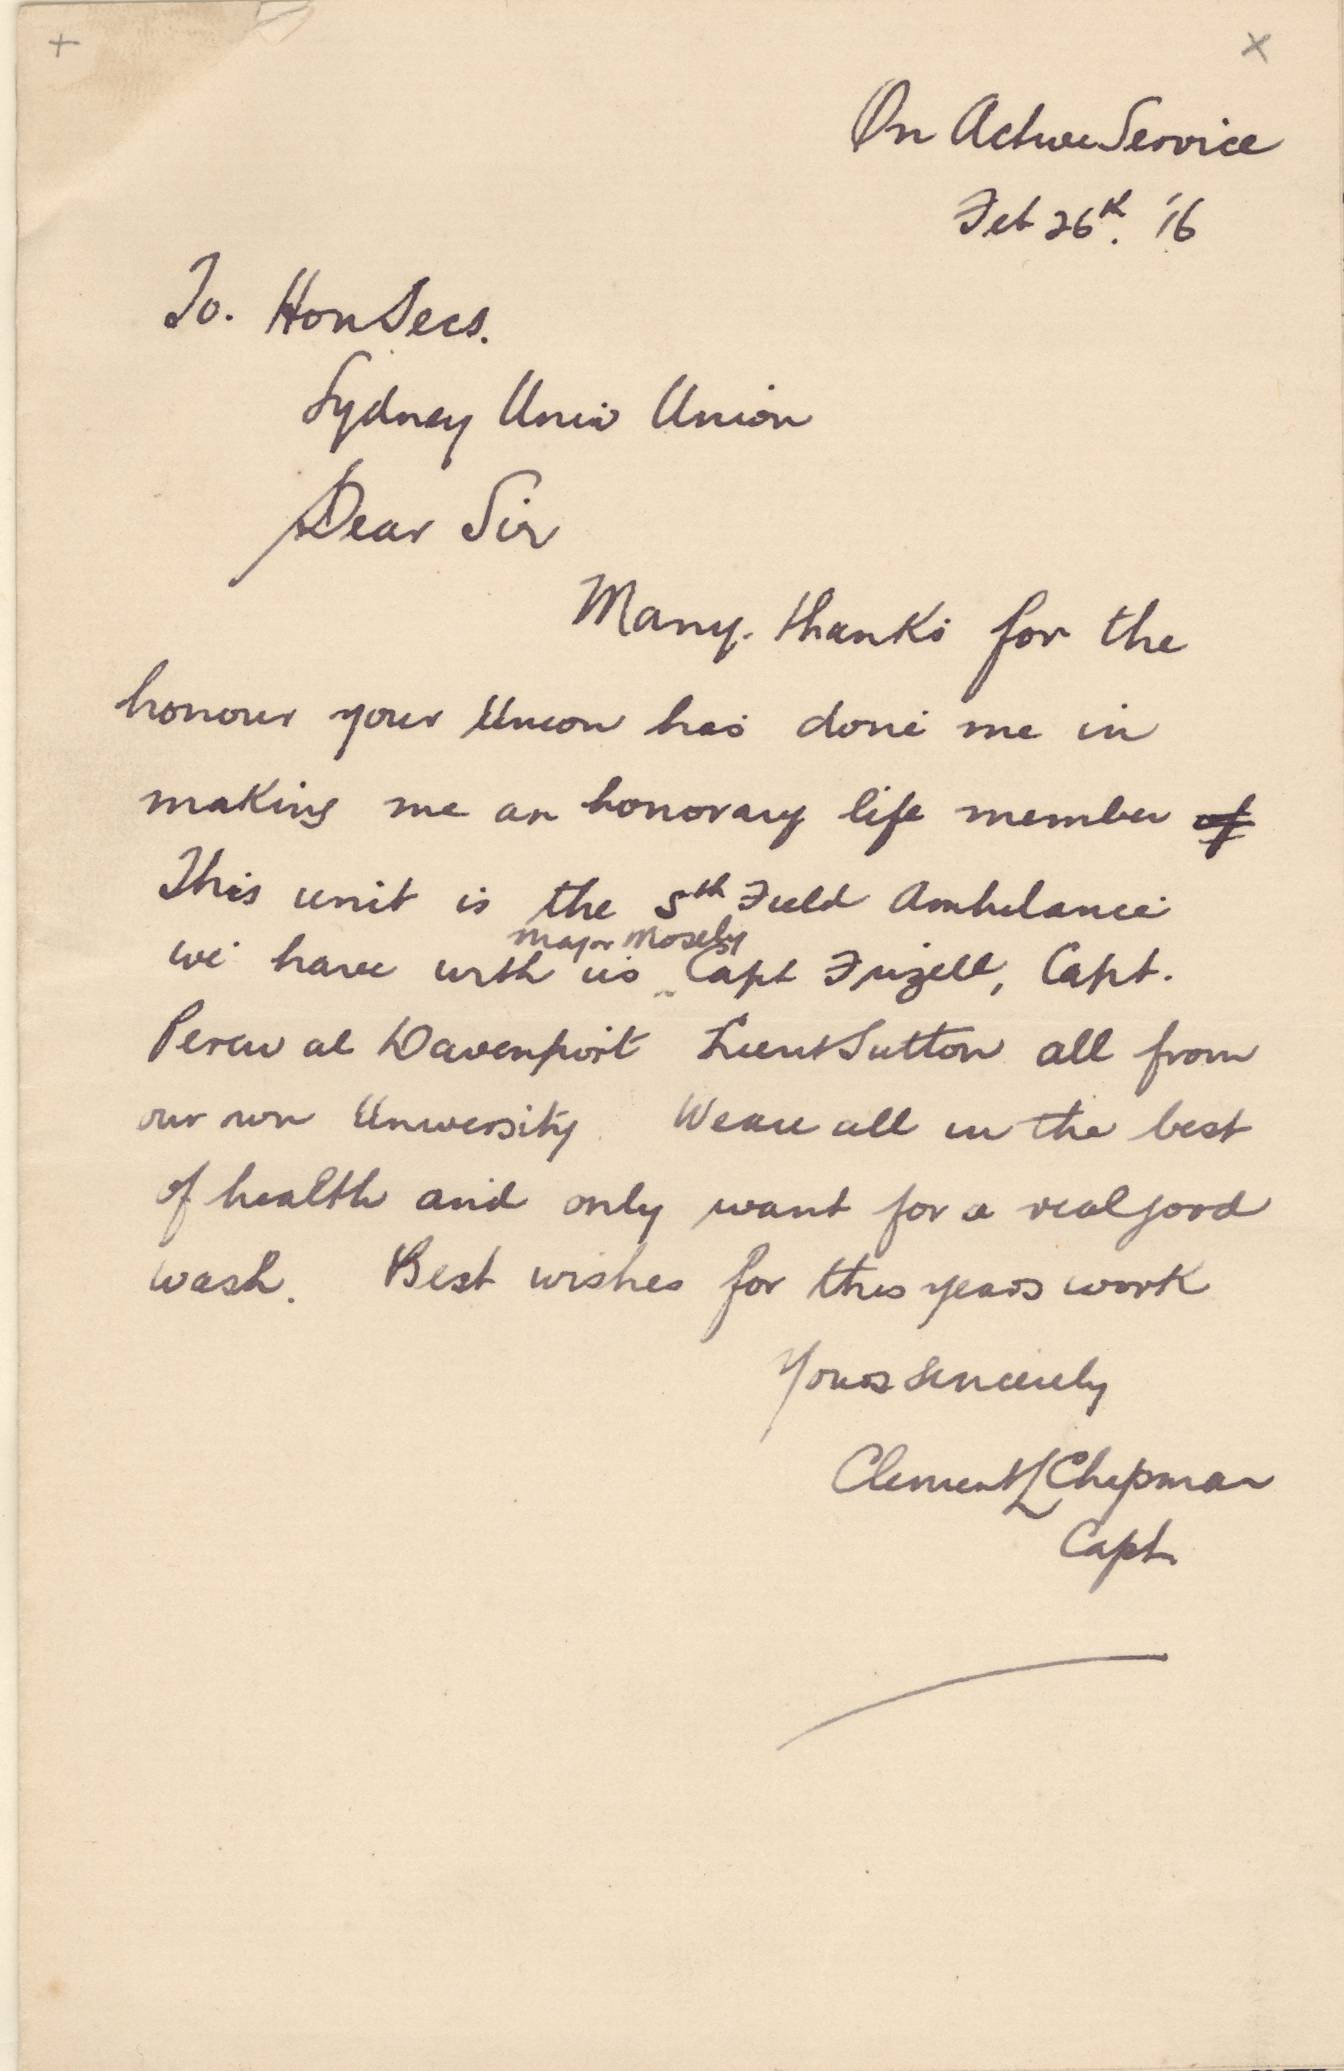 On Active Service
Feb 26th. '16
To. Hon Secs.
Sydney Univ Union
Dear Sir
Many. thanks for the
honour your Union has done me in
making me an honorary life member of
This unit is the 5th Field Ambulance
Major Mosely
we have with us Capt Frizell, Capt.
Percival Davenport Lieut Sutton all from
our own University. We are all in the best
of health and only want for a real good
wash. Best wishes for this years work
Yours sincerely
Clement L Chapman
Capt.